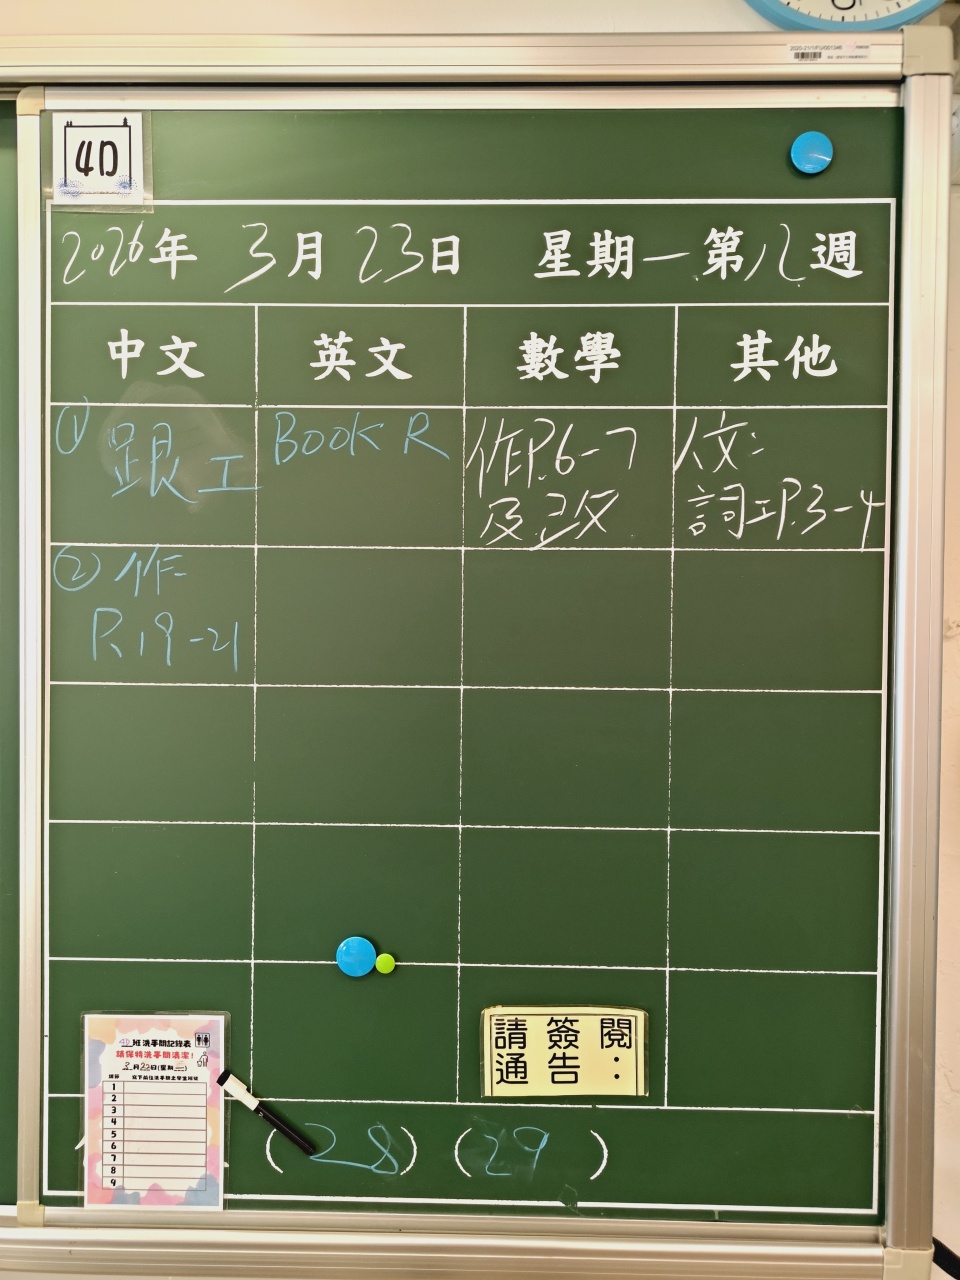 4D
2026年 3月23日 星期一 第12週
中文 英文 數學 其他
① 跟工
BOOK R
作P.6-7
及改
人文:
詞工P.3-4
② 作
P.19-21
請簽閱
通告:
4D班洗手間記錄表
請保持洗手間清潔!
3月23日(星期一)
1
2
3
4
5
6
7
8
9
(28) (29)